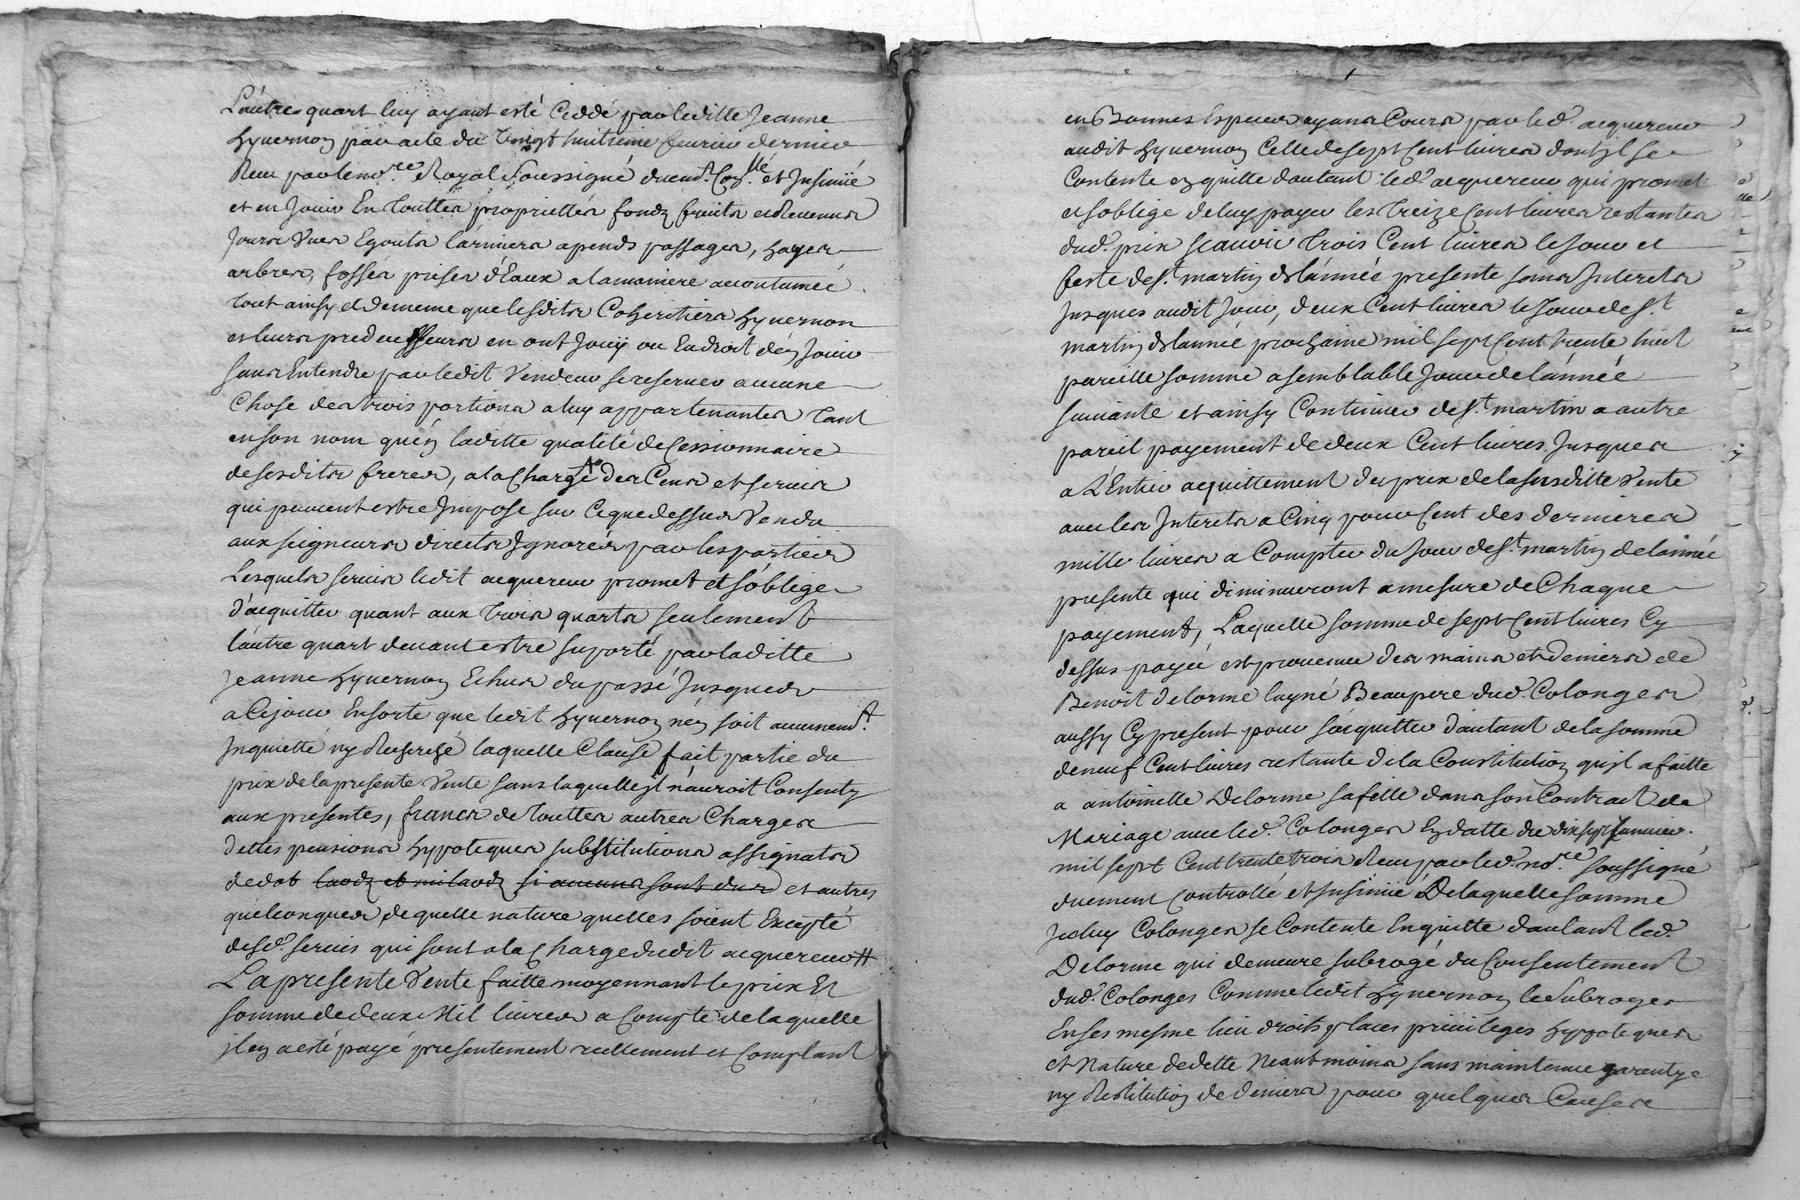 L'autre quart luy ayant esté Ceddé par laditte Jeanne
hyvernon par acte du vingt huitieme fevrier dernier
Receu par le no.re Royal Soussigné duem.t Con.llé et Insinüé
et en Jouir En Touttes proprietter fondz fruits et Revenus
Jours vues Egouts larmiers apends passages, hayes
arbres, fosses prises d'Eaux a la maniere accoutumée
tout ainsy et de meme que lesdits Coheritiers hyvernon
et leurs predecesseurs en ont Jouÿ ou Eu droit d'en Jouir
sans Entendre par ledit Vendeur se reserver aucune
Chose des trois portions a luy appartenantes Tant
en son nom qu'en laditte qualité de Cessionnaire
de sesdits freres, a la Charge des Cens et servis
qui peuvent estre Imposé sur Ce que dessus Vendu
aux seigneurs directs Ignorés par les parties
Lesquels servis ledit acquereur promet et s'oblige
d'acquitter quant aux Trois quarts seulement
l'autre quart devant estre suporté par laditte
Jeanne hyvernon Echus du passé Jusques
a Ce jour Ensorte que ledit hyvernon n'en soit aucunem.t
Inquietté ny Recherché laquelle Clause fait partie du
prix de la presente Vente sans laquelle Il n'auroit Consenty
aux presentes, francs de Touttes autres Charges
dettes pensions hypoteques substitutions assignats
de dot laodz et milaodz si aucuns sont dus et autres
quelconques de quelle nature quelles soient Excepté
desd. servis qui sont a la Charge dudit acquereur #
La presente Vente faitte moyennant le prix Et
somme de deux Mil livres a Compte de laquelle
Il en a esté payé presentement reellement et Comptant
en Bonnes Especes ayans Cours par led. acquereur
audit hyvernon Celle de sept Cent livres dont Il se
Contente en quitte d'autant led. acquereur qui promet
et s'oblige de luy payer les Treize Cent livres restantes
dud. prix scavoir Trois Cent livres le Jour et
feste de s.t martin de l'année presente sans Interets
Jusques audit Jour, deux Cent livres le Jour de s.t
martin de l'année prochaine mil sept Cent trente huit
pareille somme a semblable Jour de l'année
suivante et ainsy Continuer de s.t martin a autre
pareil payement de deux Cent livres Jusques
a L'Entier acquittement du prix de la susditte Vente
avec les Interets a Cinq pour Cent des dernieres
mille livres a Compter du Jour de s.t martin de l'année
presente qui diminueront a mesure de Chaque
payement, Laquelle somme de sept Cent livres Cy
dessus payée est provenue des mains et deniers de
Benoit delorme layné Beaupere dud. Colonges
aussy Cy present pour s'acquitter d'autant de la somme
de neuf Cent livres restante de la Constitution qu'il a faitte
a antoinette Delorme sa fille dans son Contract de
Mariage avec led. Colonges En datte du dix sept Janvier
mil sept Cent trente trois Receu par led. no.re soussigné
duement Controllé et Insinüé De laquelle somme
Iceluy Colonges se Contente En quitte d'autant led.
Delorme qui demeure subrogé du Consentement
dud. Colonges Comme ledit hyvernon le Subroges
En ses mesme lieu droits places privileges hypoteques
et Nature de dette Neantmoins sans maintenue garenty
ny Restitution de deniers pour quelques Causes